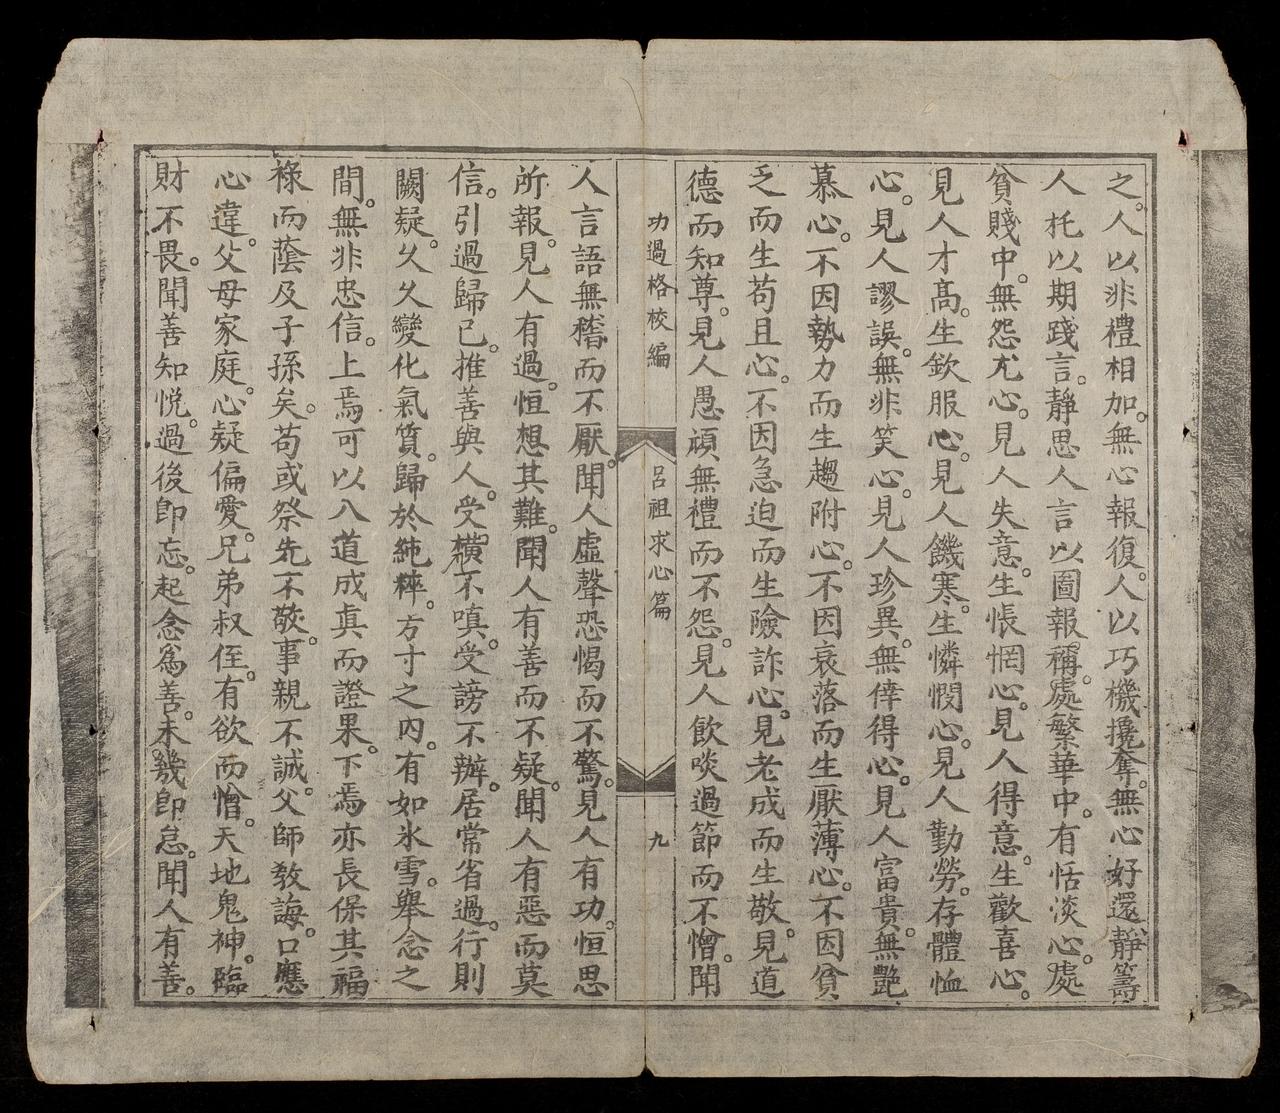 之。人以非禮相加。無心報復。人以巧機攙奪。無心好還。靜籌
人托以期踐言。靜思人言以圖報稱。處繁華中。有恬淡心。處
貧賤中。無怨尤心。見人失意。生悵惘心。見人得意。生歡喜心。
見人才高。生欽服心。見人饑寒。生憐憫心。見人勤勞。存體恤
心。見人謬誤。無非笑心。見人珍異。無倖得心。見人富貴。無艷
慕心。不因勢力而生趨附心。不因衰落而生厭薄心。不因貧
乏而生苟且心。不因急迫而生險詐心。見老成而生敬。見道
德而知尊。見人愚頑無禮而不怨。見人飲啖過節而不憎。聞
功過格校編
呂祖求心篇
九
人言語無稽而不厭。聞人虛聲恐愒而不驚。見人有功。恒思
所報。見人有過。恒想其難。聞人有善而不疑。聞人有惡而莫
信。引過歸已。推善與人。受橫不嗔。受謗不辦。居常省過。行則
闕疑。久久變化氣質。歸於純粹。方寸之內。有如氷雪。舉念之
間。無非忠信。上焉可以入道成眞而證果。下焉亦長保其福
祿而蔭及子孫矣。苟或祭先不敬。事親不誠。父師教誨。口應
心違。父母家庭。心疑偏愛。兄弟叔侄。有欲而憎。天地鬼神。臨
財不畏。聞善知悅。過後卽忘。起念爲善。未幾卽怠。聞人有善。